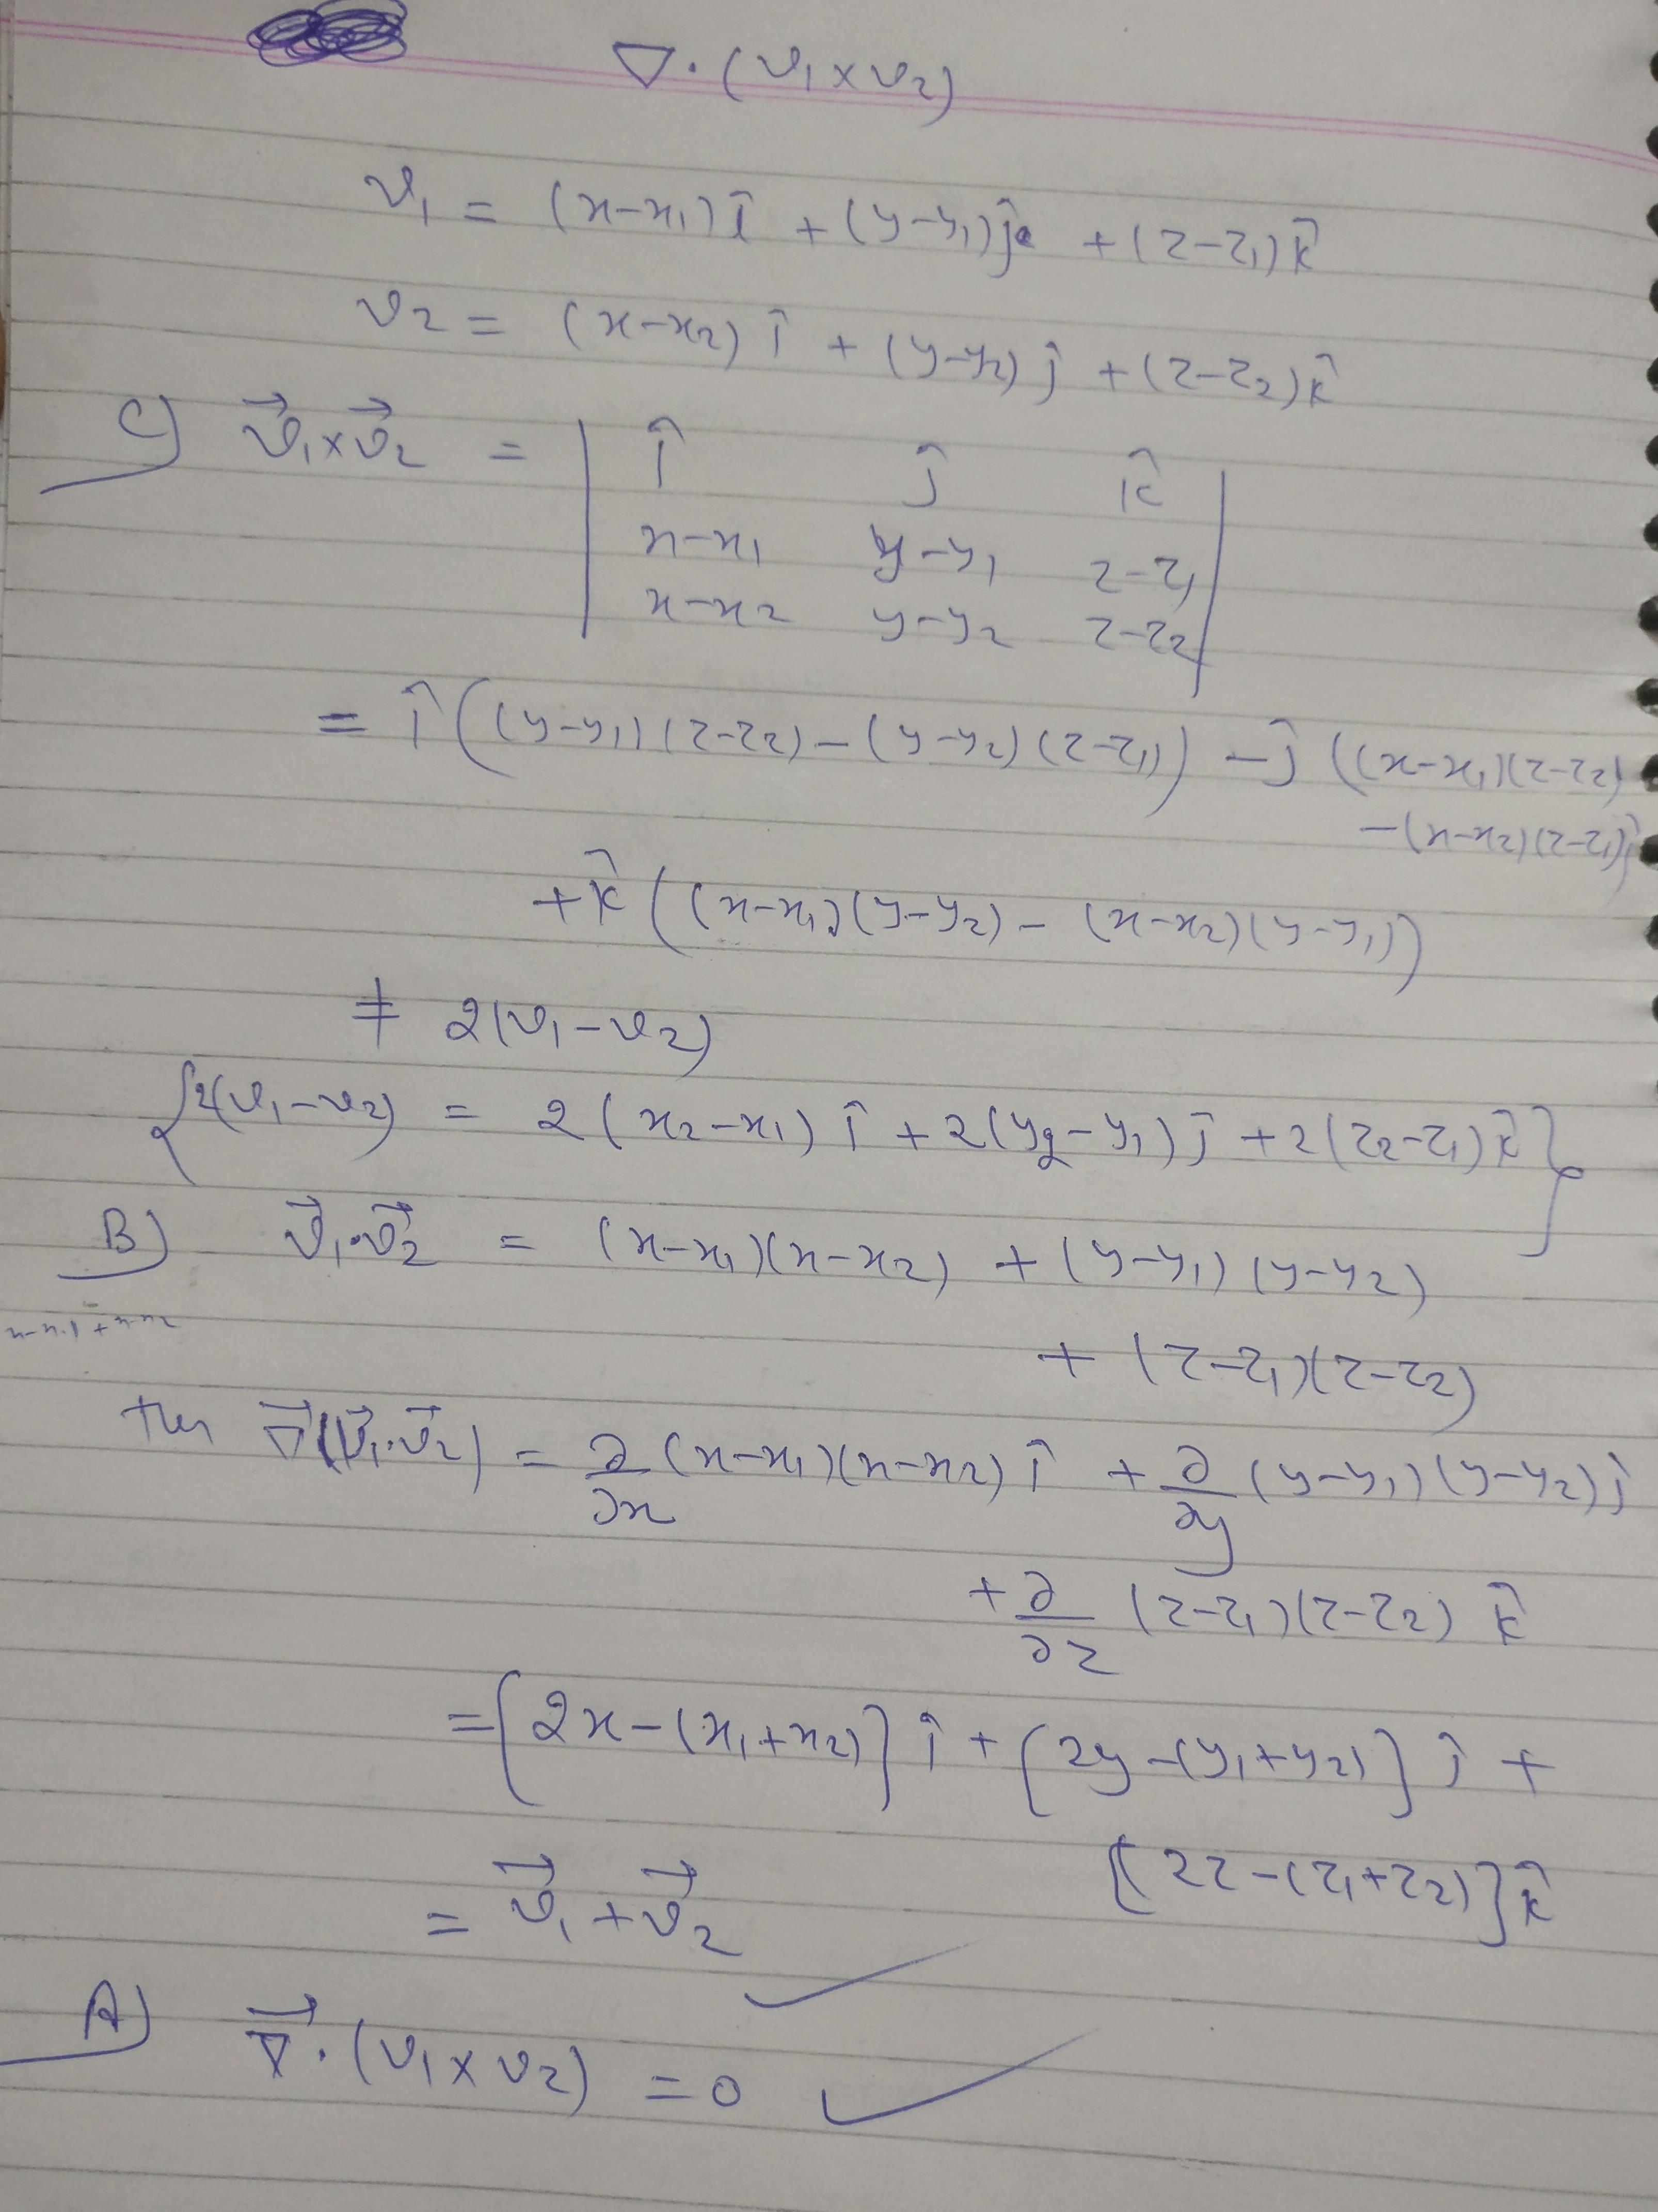 ∇·(v₁×v₂)
v₁ = (x-x₁)î + (y-y₁)ĵ + (z-z₁)k̂
v₂ = (x-x₂) î + (y-y₂) ĵ + (z-z₂)k̂
C) v⃗₁×v⃗₂ = | î ĵ k̂ |
x-x₁ y-y₁ z-z₁
x-x₂ y-y₂ z-z₂
= î ((y-y₁)(z-z₂) - (y-y₂)(z-z₁)) - ĵ ((x-x₁)(z-z₂)
-(x-x₂)(z-z₁))
+ k̂ ((x-x₁)(y-y₂) - (x-x₂)(y-y₁))
≠ 2(v₁-v₂)
{2(v₁-v₂) = 2(x₂-x₁) î + 2(y₂-y₁) ĵ + 2(z₂-z₁) k̂}
B) v⃗₁·v⃗₂ = (x-x₁)(x-x₂) + (y-y₁)(y-y₂)
x-x₁+x-x₂
+ (z-z₁)(z-z₂)
then ∇⃗(v⃗₁·v⃗₂) = ∂/∂x (x-x₁)(x-x₂) î + ∂/∂y (y-y₁)(y-y₂) ĵ
+ ∂/∂z (z-z₁)(z-z₂) k̂
= [2x-(x₁+x₂)] î + [2y-(y₁+y₂)] ĵ +
[2z-(z₁+z₂)] k̂
= v⃗₁+v⃗₂ ✓
A) ∇⃗·(v₁×v₂) = 0 ✓